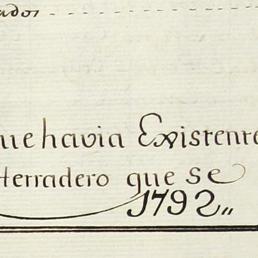 ados
ue havia Existente
Herradero que se
1792,,